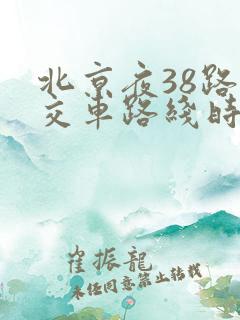 北京夜38路
交车路线时
崔振龍
未任同意禁止转载